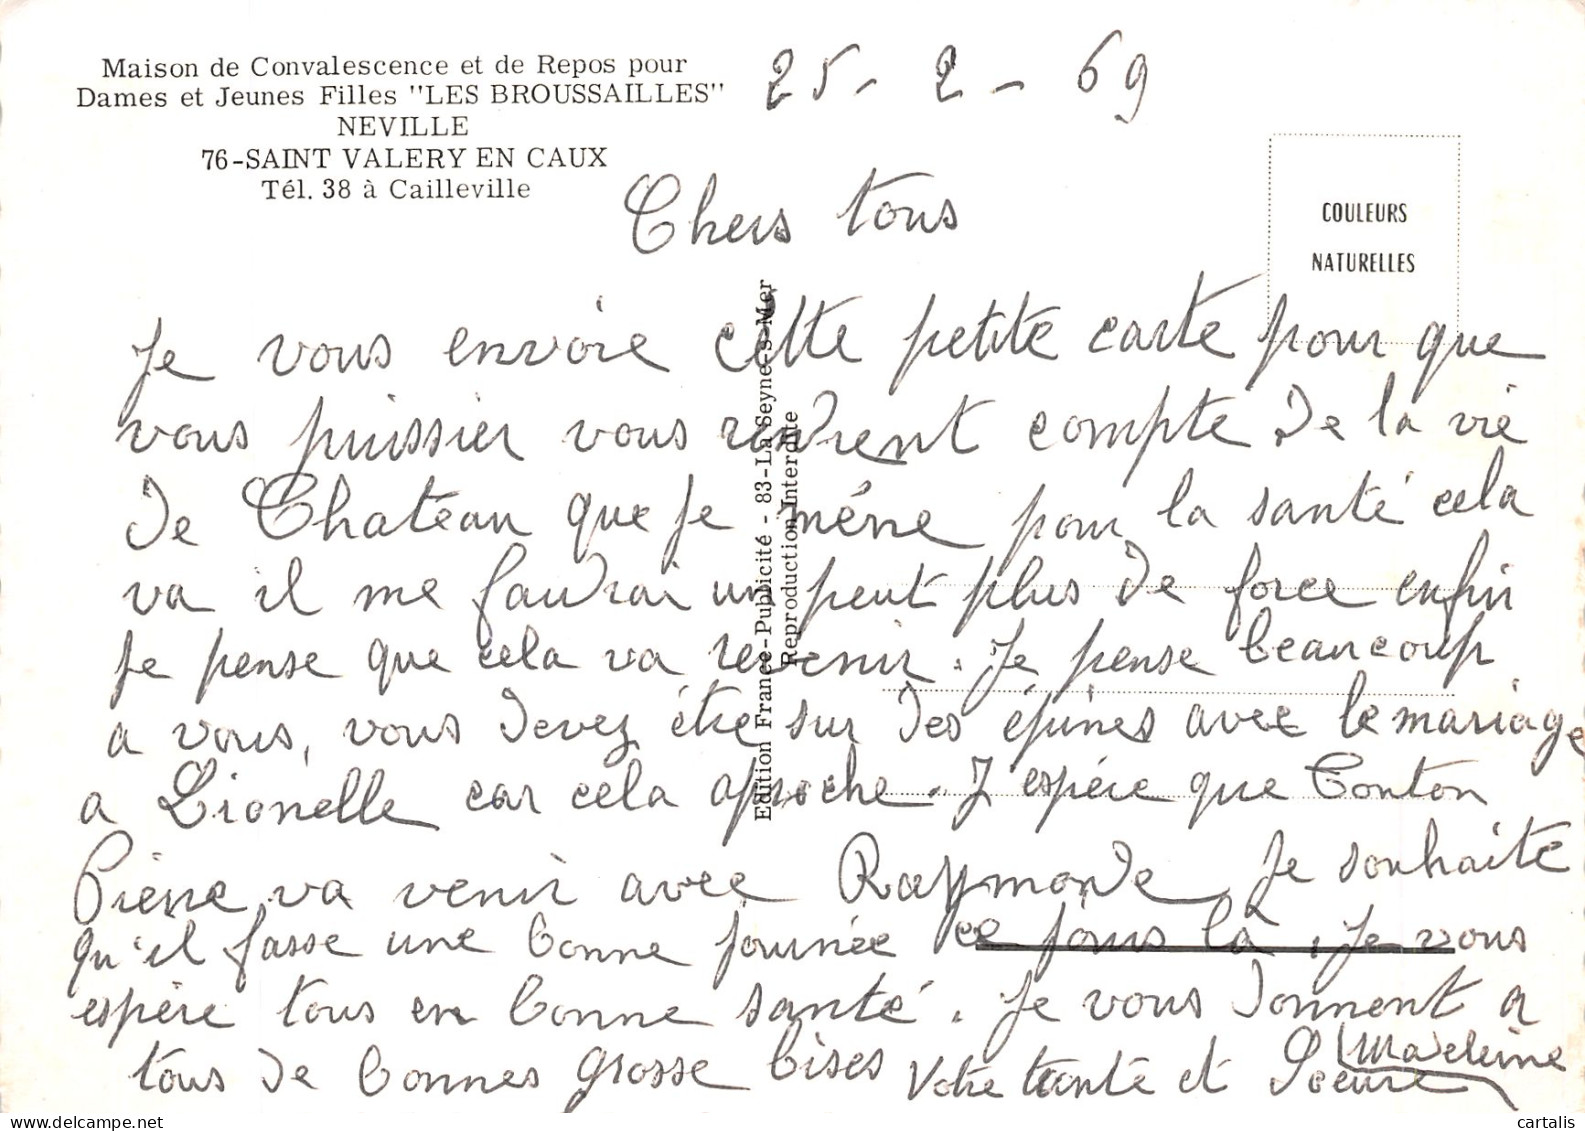 Maison de Convalescence et de Repos pour
Dames et Jeunes Filles "LES BROUSSAILLES"
NEVILLE
76-SAINT VALERY EN CAUX
Tél. 38 à Cailleville
25 - 2 - 69
COULEURS
NATURELLES
Chers tous
Je vous envoie cette petite carte pour que
vous puissier vous rendrent compte de la vie
de Chateau que je mène pour la santé cela
va il me faudrai un peut plus de force enfin
je pense que cela va revenir. Je pense beaucoup
a vous, vous devez être sur des épines avec le mariage
a Lionelle car cela aproche. J espère que Tonton
Pierre va venir avec Raymonde. Je souhaite
qu'il fasse une bonne journée ce jours là. Je vous
espère tous en bonne santé. Je vous donnent a
tous de bonnes grosse bises Votre tante et Soeure Madeleine
Edition France-Publicité - 83-La Seyne-s-Mer
Reproduction Interdite
cartalis